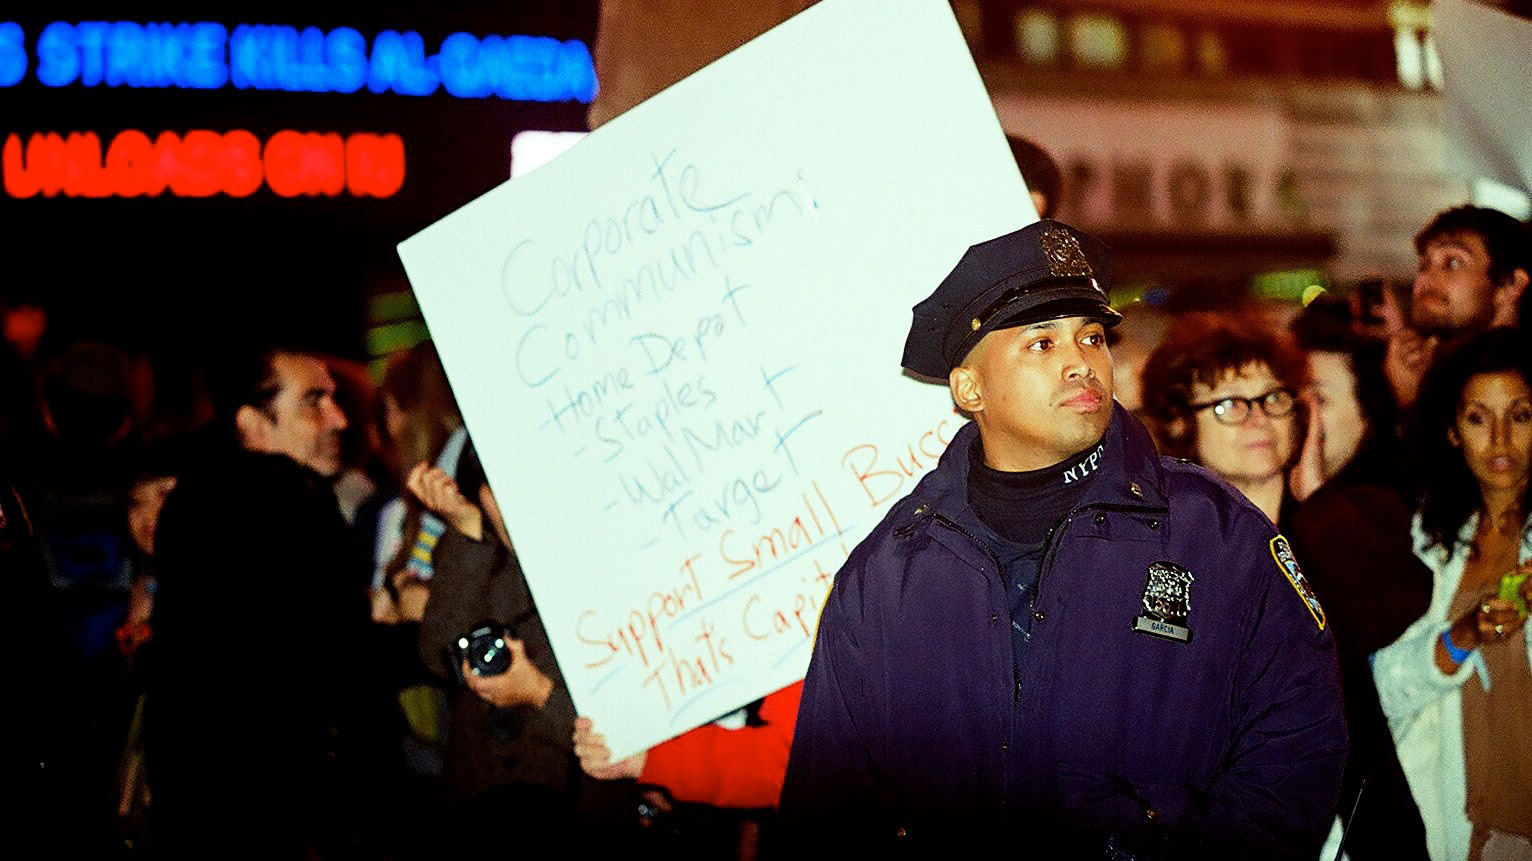 S STRIKE KILLS AL-QAEDA
UNLOADS ON
Corporate
Communism:
Home Depot
- Staples
- Wal Mart
- Target
Support Small
That's
NYPD
GARCIA